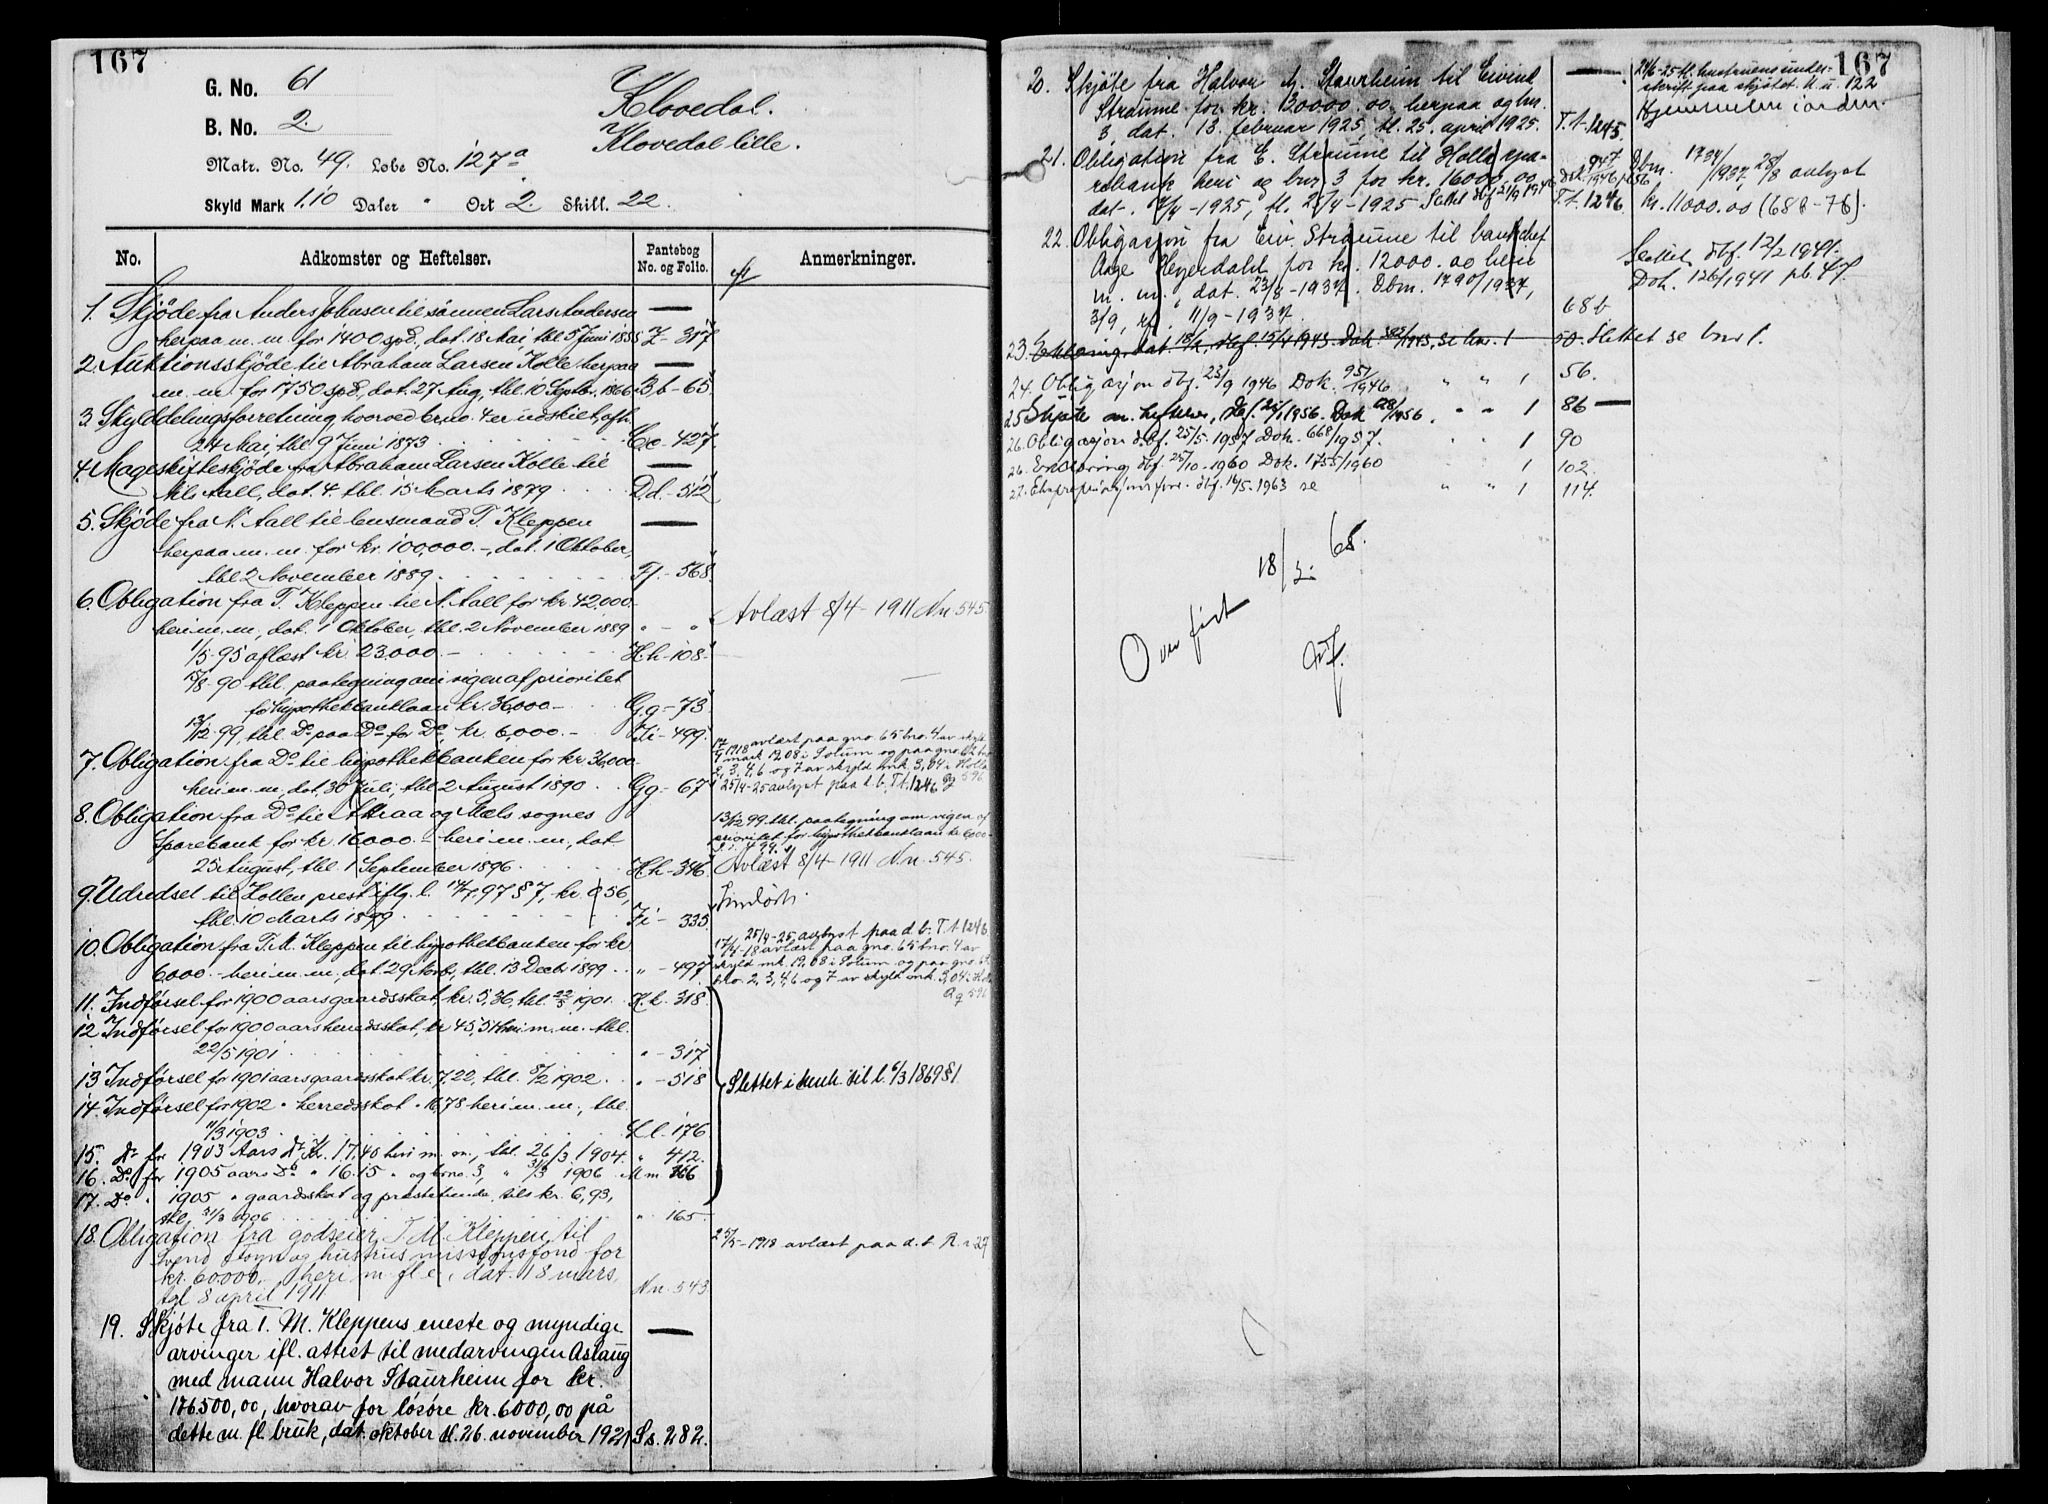 167
G. No. 61
B. No. 2.
Matr. No. 49. Løbe No. 127a
Skyld Mark 1,10 Daler " Ort 2. Skill. 22.
Klovedal.
Klovedal lille.
No. Adkomster og Heftelser. Pantebog No. og Folio. Anmerkninger.
1. Skjøde fra Anders Johnsen til sønnen Lars Andersen —
herpaa m. m. for 1400 spd, dat. 18 Mai, tbl 5 Juni 1855 Z - 317
2. Auktionsskjøde til Abraham Larsen Kolle herpaa —
m. m. for 1750 spd, dat. 27 Aug, tbl. 10 Septbr. 1866 Bb - 65
3. Skylddelingsforretning hvorved br.no. 4 er udskilt, afh.
24 Mai, tbl 9 Juni 1873 Cc - 427
4. Mageskifteskjøde fra Abraham Larsen Kolle til —
Nils Aall, dat. 4. tbl. 15 Marts 1879 Dd - 512
5. Skjøde fra N. Aall til lensmand T. Kleppen —
herpaa m. m. for kr. 100,000.-, dat. 1 Oktober,
tbl 2 November 1889 Ff. - 568
6. Obligation fra T. Kleppen til N. Aall for kr 42,000.-
heri m. m, dat. 1 Oktober, tbl. 2 November 1889 " - " Avlæst 8/4 - 1911 Nn 545.
1/5-95 aflæst kr. 23,000.- Hh - 108
15/8-90 tbl. paategning om vigen af prioritet
for hypothekbanklaan kr. 36,000.- Gg - 73
13/12-99, tbl Do paa Do for Do, kr. 6,000.- Ii - 499.
7. Obligation fra Do til hypothekbanken for kr 36,000.-
heri m. m, dat. 30 Juli, tbl 2 August 1890 Gg - 67
17/4 1918 avlæst paa gno. 65 bno. 4 av skyld
mark 19,08 i Solum og paa gno. 61 bno
2, 3, 4, 6 og 7 av skyld mk. 3,04 i Holla
25/4-25 avlyst paa d. b. T.t. 1246 Qq 596
8. Obligation fra Do til Atraa og Mæls sognes
Sparebank for kr 16000.- heri m. m, dat
25 August, tbl. 1 September 1896 Hh - 346
13/12 99 tbl. paategning om vigen af
prioritet for hypothekbanklaan kr 6,000.-
I.i. 499.
Avlæst 8/4 - 1911 N.n. 545.
9. Udredsel til Hollen prest iflg. l. 14/7 97 § 7, kr. 0,56,
tbl. 10 Marts 1899 Ii - 335
Indløst.
10. Obligation fra T. M. Kleppen til hypothekbanken for kr
6000.- heri m. m, dat. 29 Novb, tbl. 13 Decbr 1899 " - 497
25/4-25 avlyst paa d. b. T.t. 1246.
17/4-18 avlæst paa gno. 65 bno. 4 av
skyld mk. 19,08 i Solum og paa gno. 61
bno. 2, 3, 4, 6 og 7 av skyld mk. 3,04 i Holla
Qq 596
11. Indførsel for 1900 aars gaardsskat, kr. 5,36, tbl. 22/5 1901. K.k. 318.
12. Indførsel for 1900 aars herredsskat, kr 45,51 heri m. m. tbl.
22/5 1901 " - 317
13 Indførsel for 1901 aars gaardsskat kr. 7,22, tbl. 8/2 1902. " - 518
Slettet i henh. til l. 6/3 1869 § 1
14. Indførsel for 1902 " herredsskat " 16,78 heri m. m., tbl.
11/3 1903 Ll. 176.
15. Do for 1903 Aars Do Kr. 17.40 heri m. m., tbl. 26/3. 1904. " 412.
16. Do for 1905 aars Do " 16.15 " og bno. 3, " 31/3 1906 Mm 166
17. Do " 1905 " gaardsskat og præstetiende, tils kr. 6,93,
tbl. 31/3 1906 " 165.
18. Obligation fra godseier T. M. Kleppen til
Svend Foyn og hustrus missionsfond for
kr. 60000.- heri m. fl. e., dat. 18 mars,
tgl 8 april 1911 Nn. 543
25/5-1918 avlæst paa d. b R.r. 27
19. Skjøte fra T. M. Kleppens eneste og myndige —
arvinger ifl. attest til medarvingen Aslaug
med mann Halvor Staurheim for kr.
186500,00, hvorav for løsøre kr. 6000,00 på
dette m. fl. bruk, dat. oktober tl. 26. november 1921 Ss. 282.
167
20. Skjøte fra Halvor A. Staurheim til Eivind —
Straume for kr. 120000.00 herpaa og bnr.
3, dat. 13. februar 1925, tl. 25. april 1925. T.t. 1245.
24/6-25 tl. hustruens under-
skrift paa skjøtet. U.u. 122
Hjemmelen i orden.
21. Obligation fra E. Straume til Holla spa-
rebank heri og bnr. 3 for kr. 16000,00
dat. 7/4-1925, tl. 25/4-1925 Slettet dbf 21/9 1946 dok 947/1946 pb 56 T.t. 1246.
Dbm. 1734/1937, 28/8 avlyst
kr. 11000.00 (68b-76).
22. Obligasjon fra Eiv. Straume til banksjef
Aage Heyerdahl for kr. 12000.00 heri
m. m., dat. 23/8-1937. Dbm. 1790/1937,
3/9, rf. 11/9-1937. 68b
Slettet dbf. 12/2 1941.
Dok. 126/1941 pb. 47.
23. Erklæring, dat. 18/2, dbf 15/4 1943. Dok. 383/1943, se bnr. 1 50. Slettet se bnr 1.
24. Obligasjon dbf. 23/9 1946 Dok. 951/1946 " " 1 56.
25 Skjøte m. heftelser, Dbf. 25/1 1956. Dok 128/1956. " " 1 86 —
26. Obligasjon dbf. 25/5. 1957 Dok. 668/1957. " " 1 90
26. Erklæring dbf. 25/10. 1960 Dok. 1755/1960 " 1 102.
27. Ekspropriasjonsforr. dbf. 16/5. 1963 se " " 1 114.
Overført 18/3. 65.